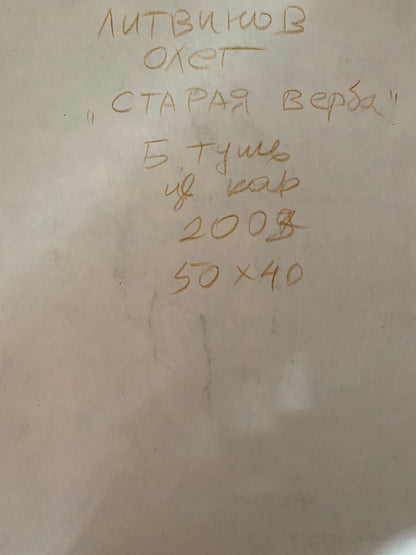 ЛИТВИНОВ
ОЛЕГ
„СТАРАЯ верба"
Б. тушь
цв. кар
50 х 40